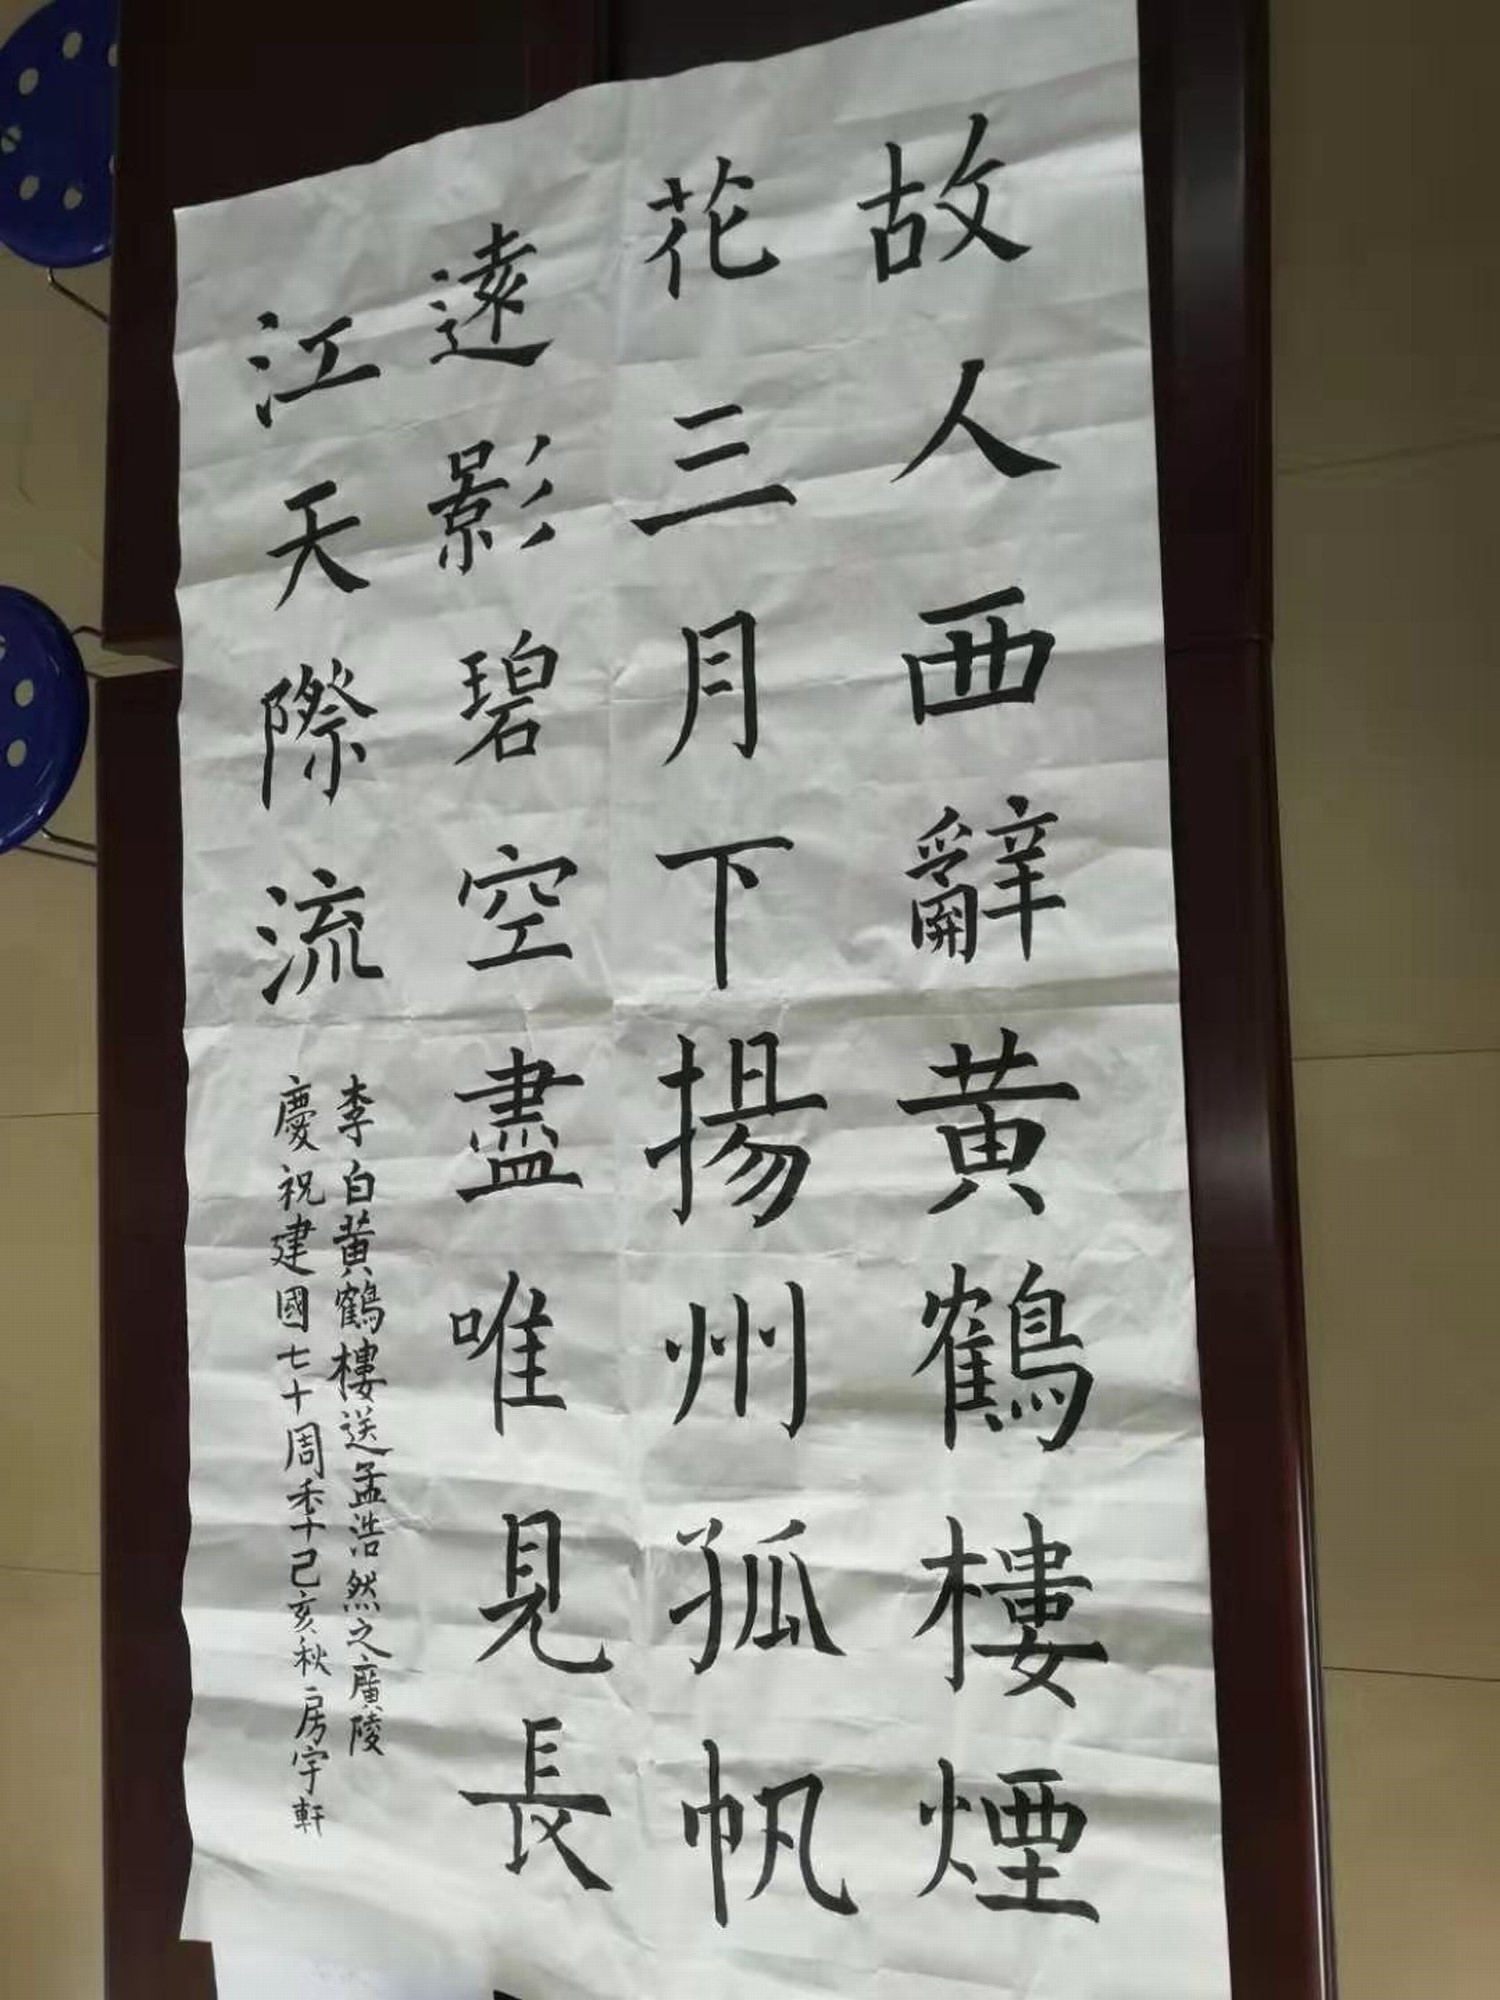 故人西辭黄鶴樓煙
花三月下揚州孤帆
遠影碧空盡唯見長
江天際流
李白黄鶴樓送孟浩然之廣陵
慶祝建國七十周季己亥秋房宇軒